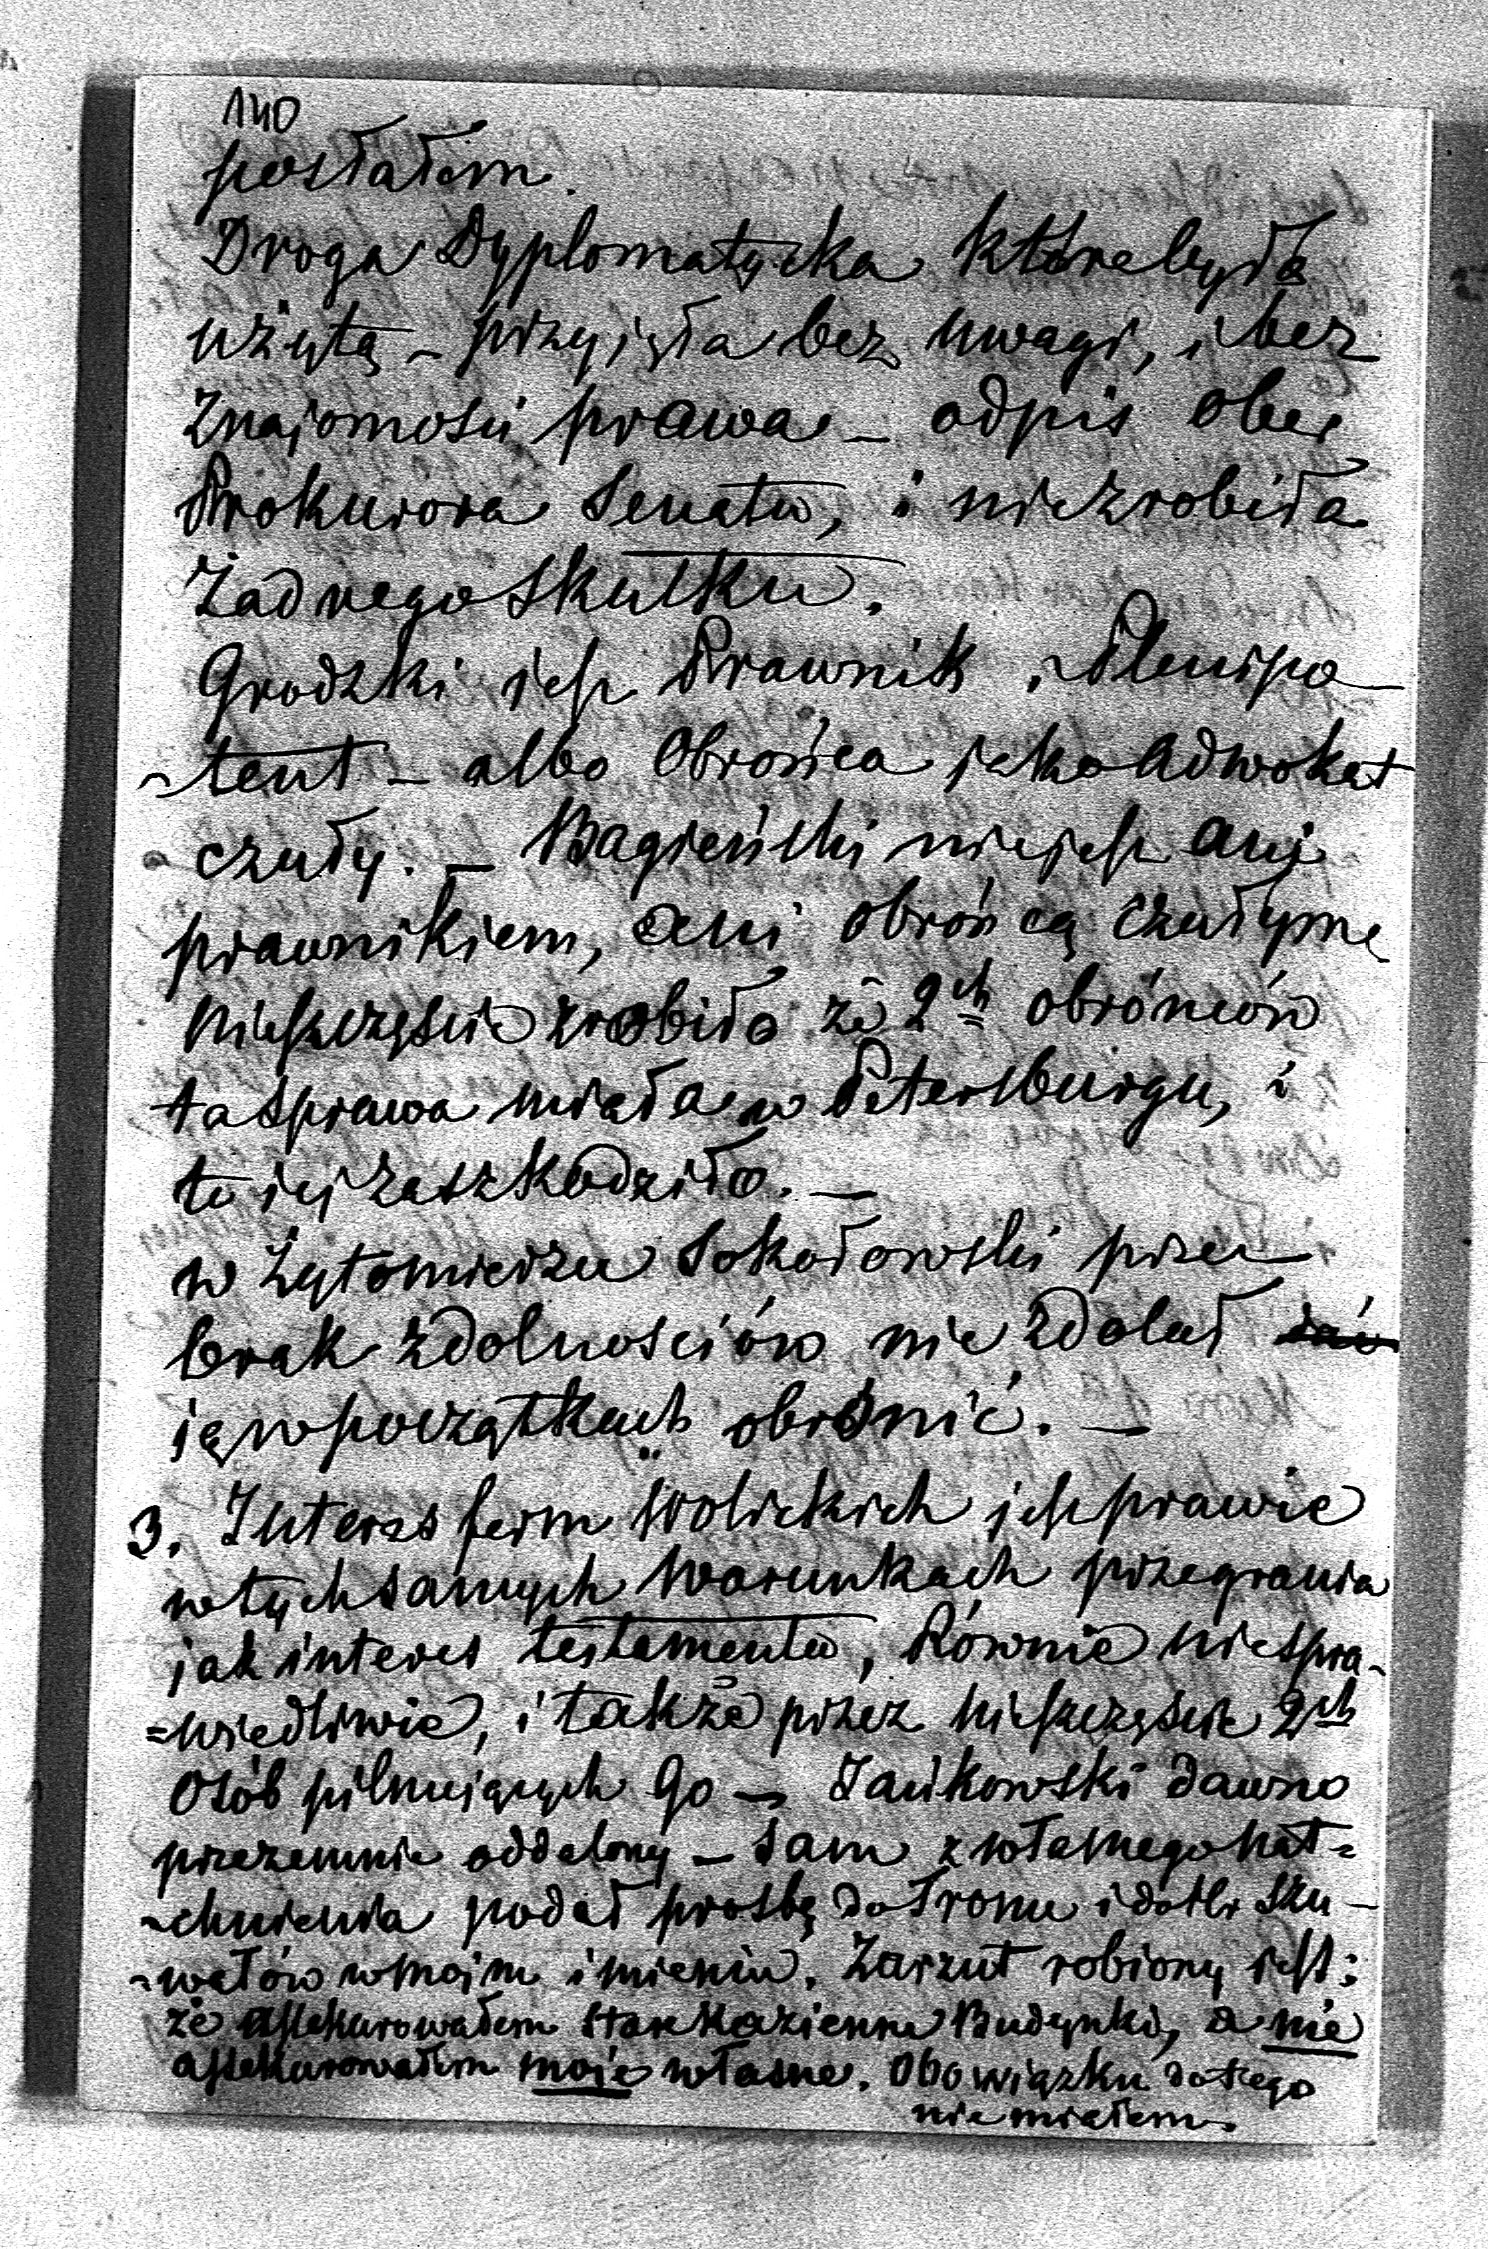 140
posłałem.
Droga Dyplomatycka które była
użytą – przyjęła bez uwagi, i bez
Znajomości prawa – odpis ober
Prokurora Senatu, i niezrobiła
Żadnego skutku.
Grodzki jest Prawnik i Plenipo
~tent – albo Obrońca jako Adwokat
czuły. – Bagieński niejest ani
prawnikiem, ani obrońcą czułym
Nieszczęście zrobiło że 2ch obrońców
ta sprawa miała w Petersburgu, i
to jej zaszkodziło. –
w Żytomierzu Sokołowski przez
brak zdolnościów nie zdołał
ję w początkach obronić. –
3. Interes ferm Wolickich jest prawie
w tych samych Warunkach przegrania
jak interes testamentu, Równie niespra-
=wiedliwie, i także przez nieszczęście 2ch
Osób pilnujących Go – Jankowski dawno
przezemnie oddalony – sam z własnego nat=
~chnienia podał prośbę do Tronu i do Sku –
~wałów w moim imieniu. Zarzut robiony jest:
że assekurowałem stare Kazienne Budynki, a nie
assekurowałem moje własne. Obowiązku do tego
nie miałem.